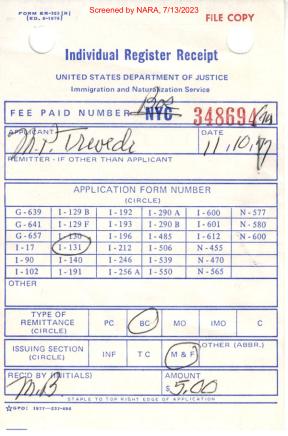 Screened by NARA, 7/13/2023
FORM ER-303 (H)
(ED. 5-1976)
FILE COPY
Individual Register Receipt
UNITED STATES DEPARTMENT OF JUSTICE
Immigration and Naturalization Service
FEE PAID NUMBER Bos NYC 348694
APPLICANT DATE
M.P. Trevedi 11,10,77
REMITTER - IF OTHER THAN APPLICANT
APPLICATION FORM NUMBER
(CIRCLE)
G-639 I-129 B I-192 I-290 A I-600 N-577
G-641 I-129 F I-193 I-290 B I-601 N-580
G-657 I-130 I-196 I-485 I-612 N-600
I-17 I-131 I-212 I-506 N-455
I-90 I-140 I-246 I-539 N-470
I-102 I-191 I-256 A I-550 N-565
OTHER
TYPE OF REMITTANCE (CIRCLE) PC BC MO IMO C
ISSUING SECTION (CIRCLE) INF T C M & F OTHER (ABBR.)
REC'D BY (INITIALS) AMOUNT
M.B $5.00
STAPLE TO TOP RIGHT EDGE OF APPLICATION
☆GPO: 1977-237-698